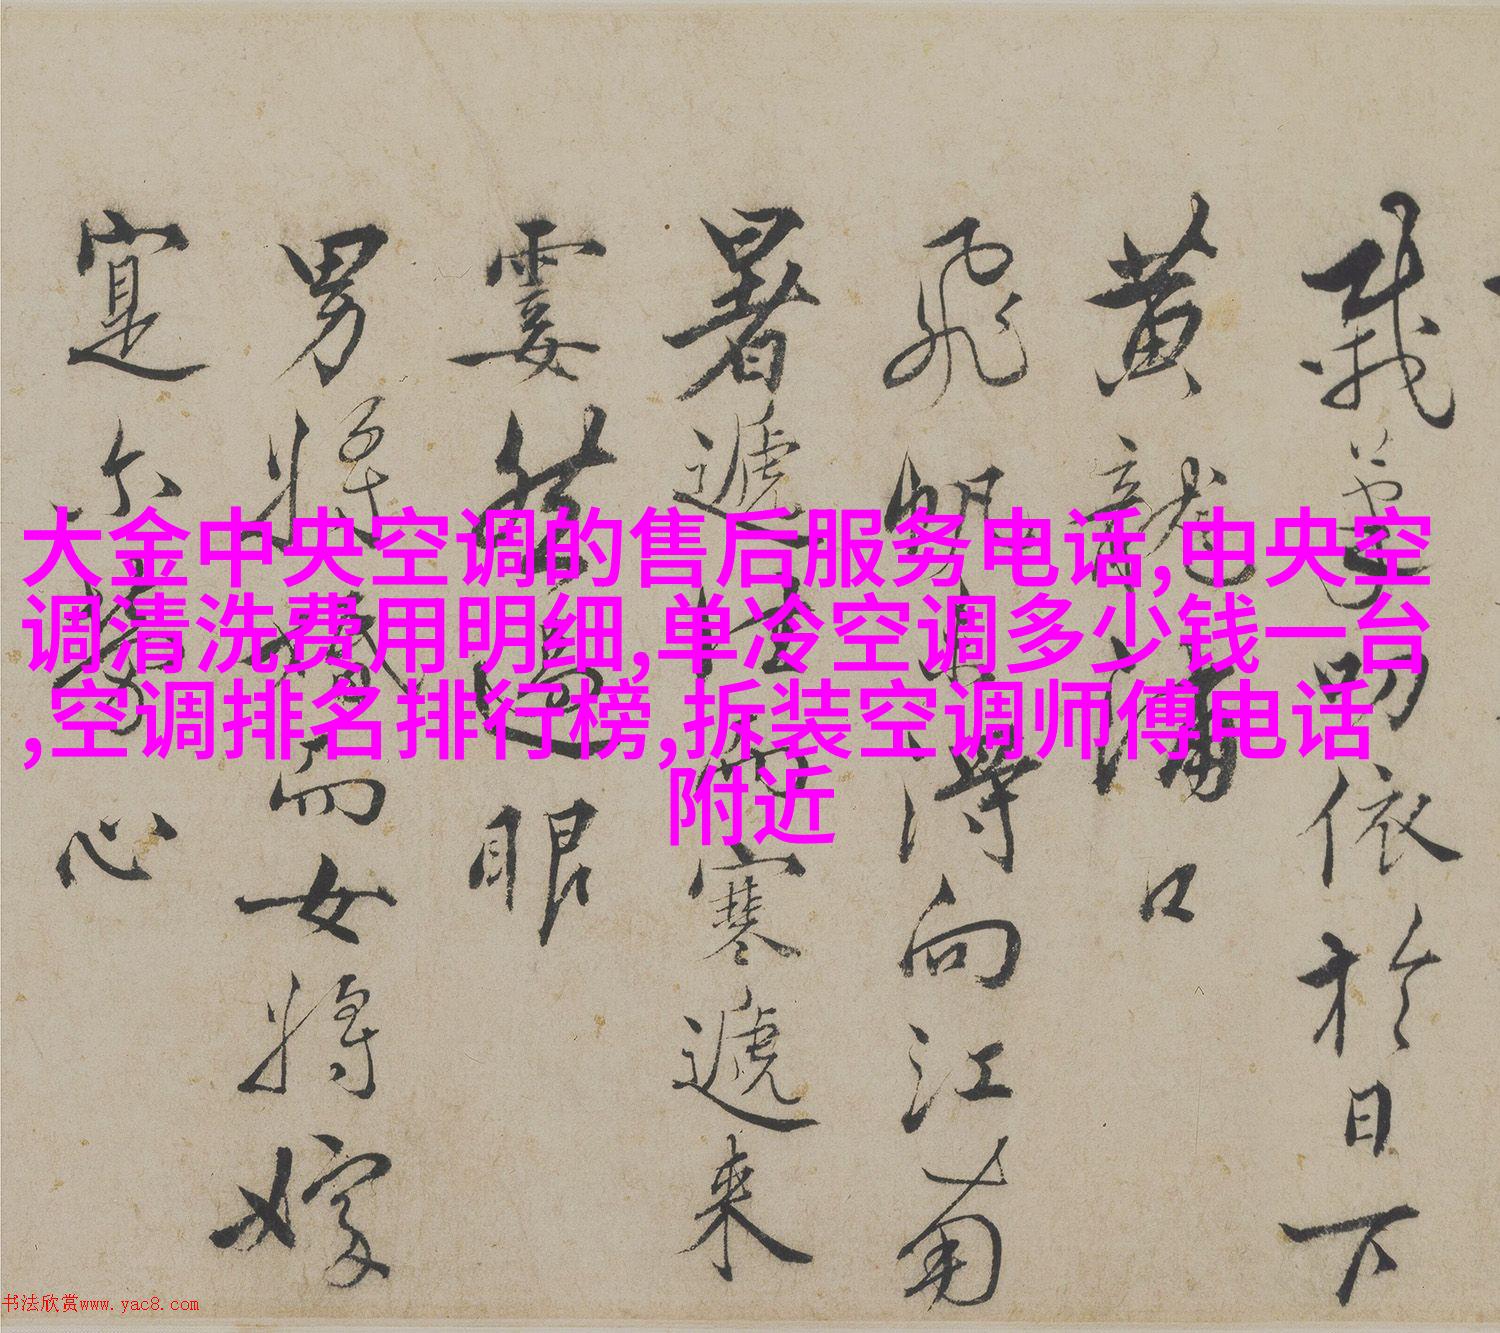 大金中央空调的售后服务电话,中央空
调清洗费用明细,单冷空调多少钱一台
,空调排名排行榜,拆装空调师傅电话
附近
依於日下
黄龍浦口
飛帆得向江南
暑遞往而寒遞来
霎然過眼
男将而女将嫁
寔心
书法欣赏www.yac8.com